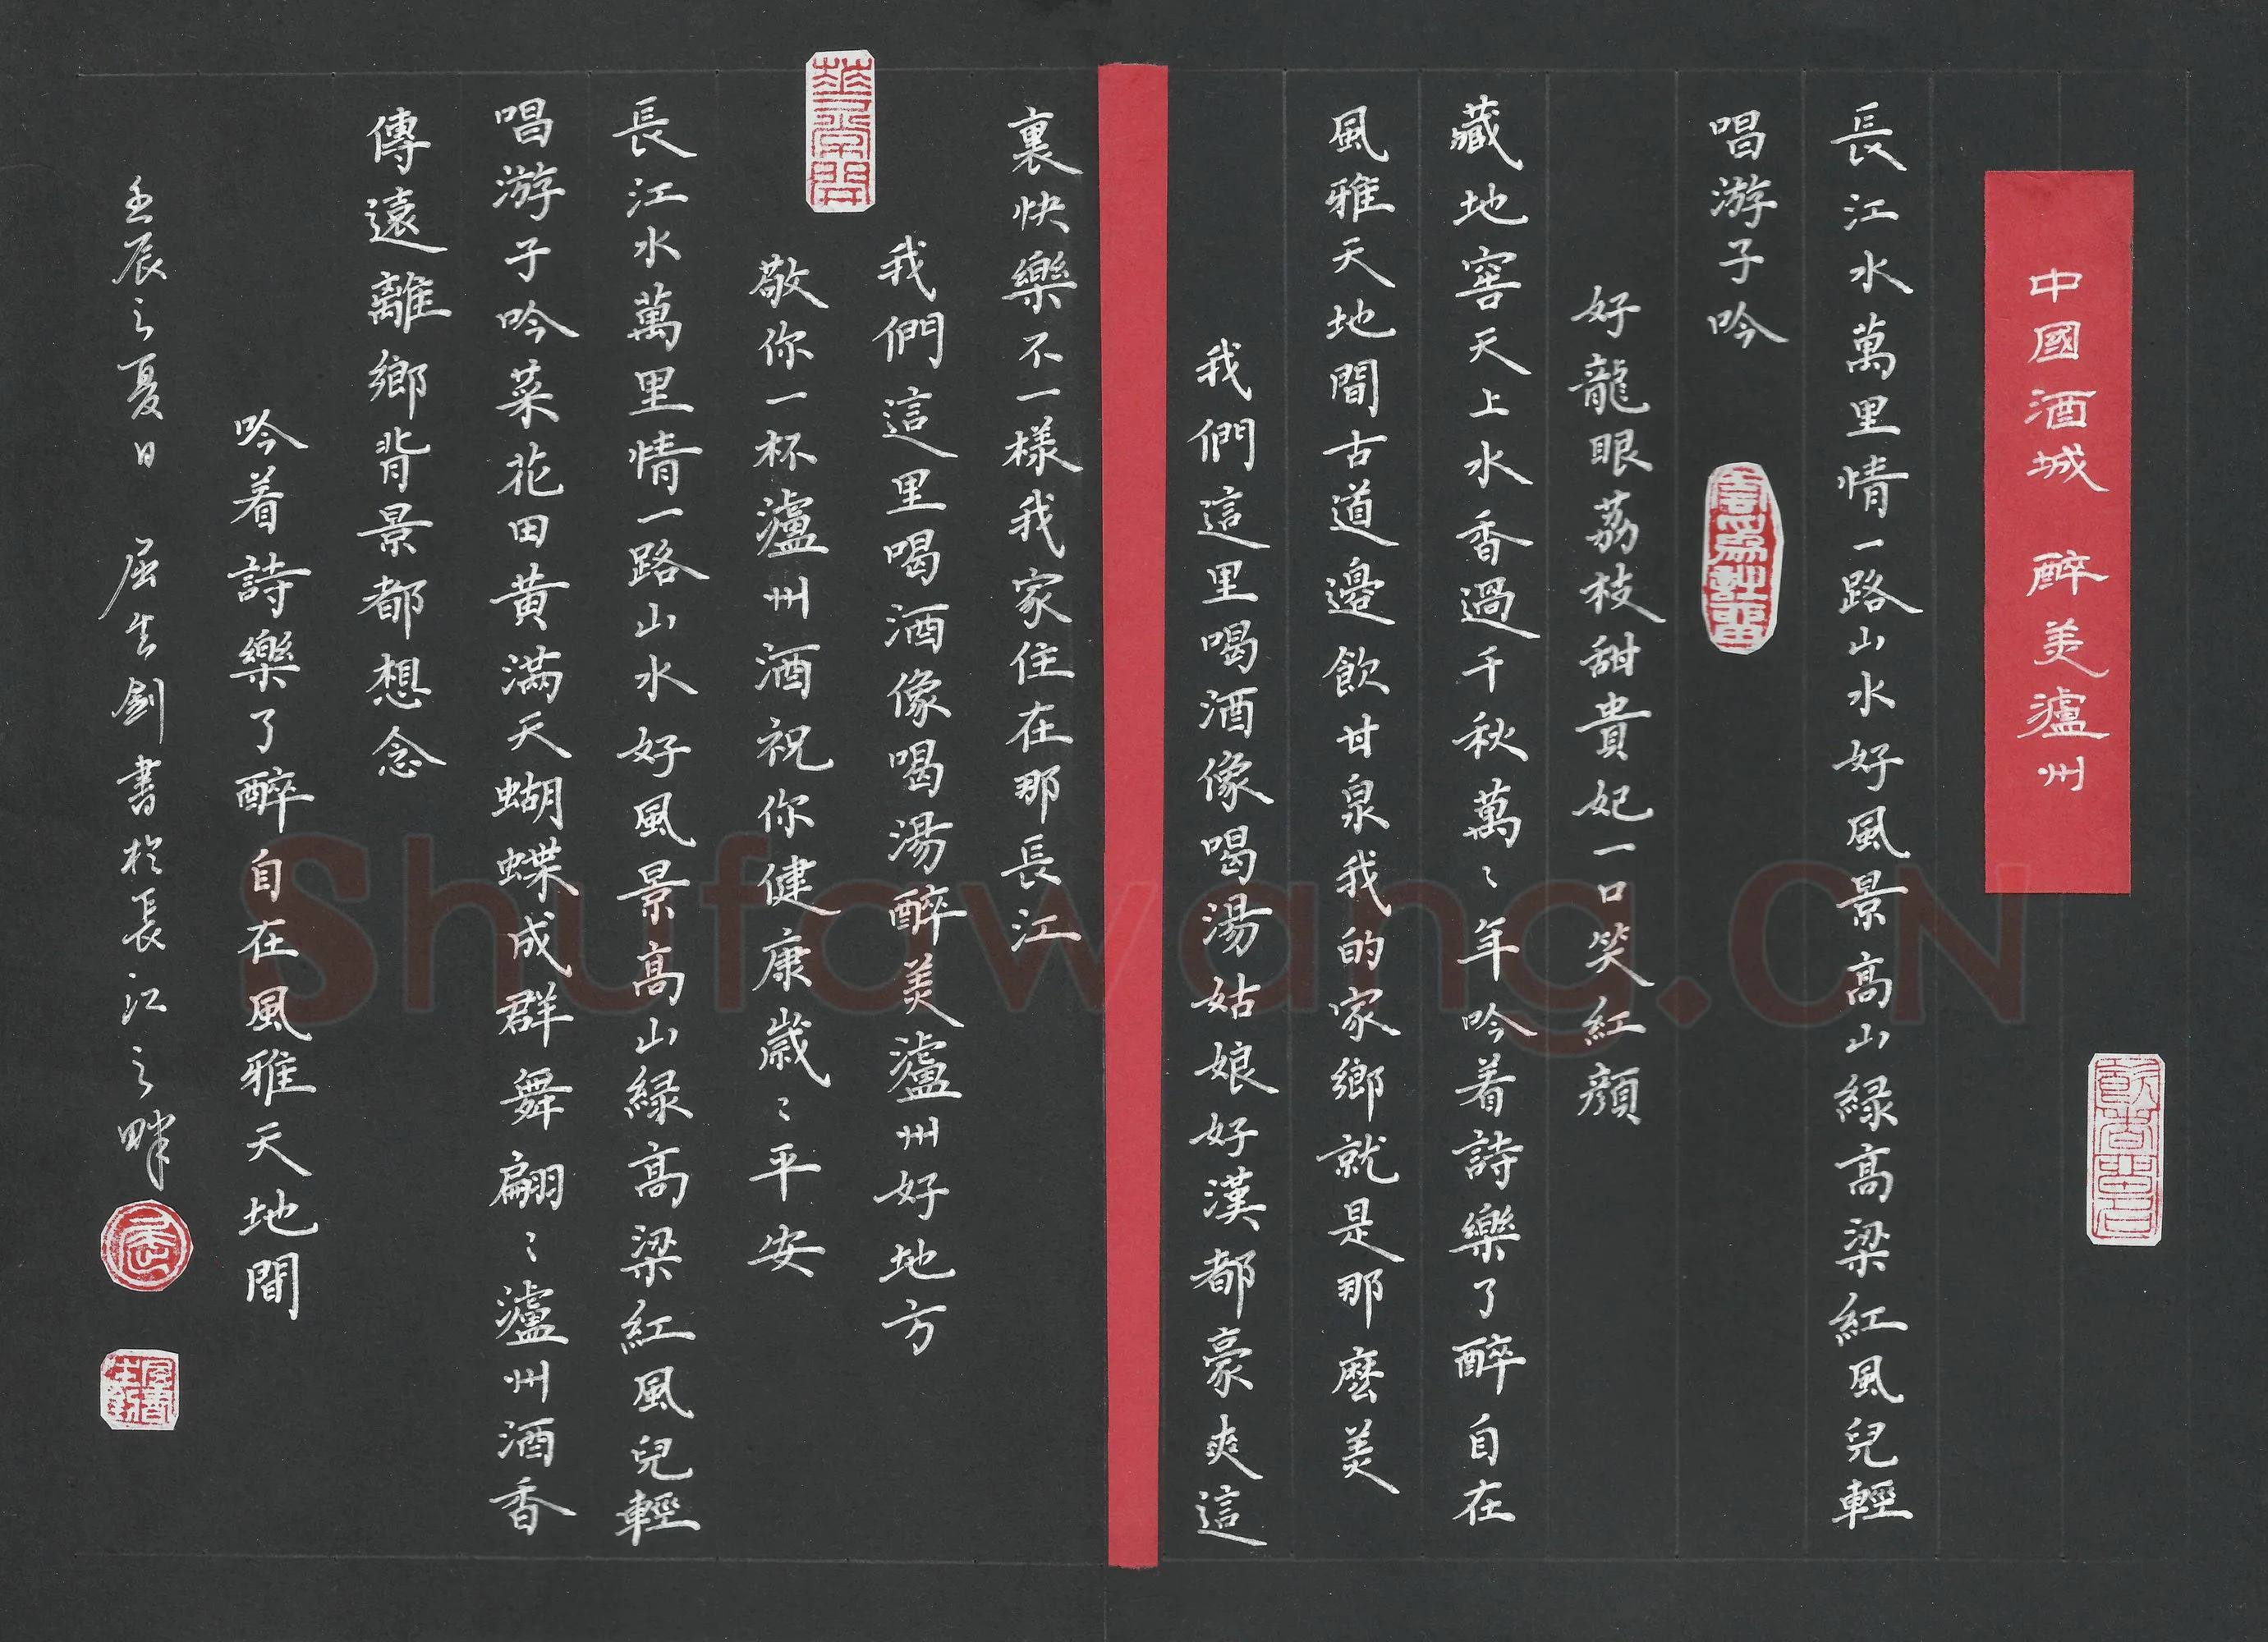 中國酒城 醉美瀘州
長江水萬里情一路山水好風景高山緑高粱紅風兒輕
唱游子吟
好龍眼荔枝甜貴妃一口笑紅顔
藏地窖天上水香過千秋萬〻年吟着詩樂了醉自在
風雅天地間古道邊飲甘泉我的家鄉就是那麽美
我們這里喝酒像喝湯姑娘好漢都豪爽這
裏快樂不一樣我家住在那長江
我們這里喝酒像喝湯醉美瀘州好地方
敬你一杯瀘州酒祝你健康歲〻平安
長江水萬里情一路山水好風景高山緑高粱紅風兒輕
唱游子吟菜花田黄滿天蝴蝶成群舞翩〻瀘州酒香
傳遠離鄉背景都想念
吟着詩樂了醉自在風雅天地間
壬辰之夏日 屈生釗書於長江之畔
Shufawang.CN